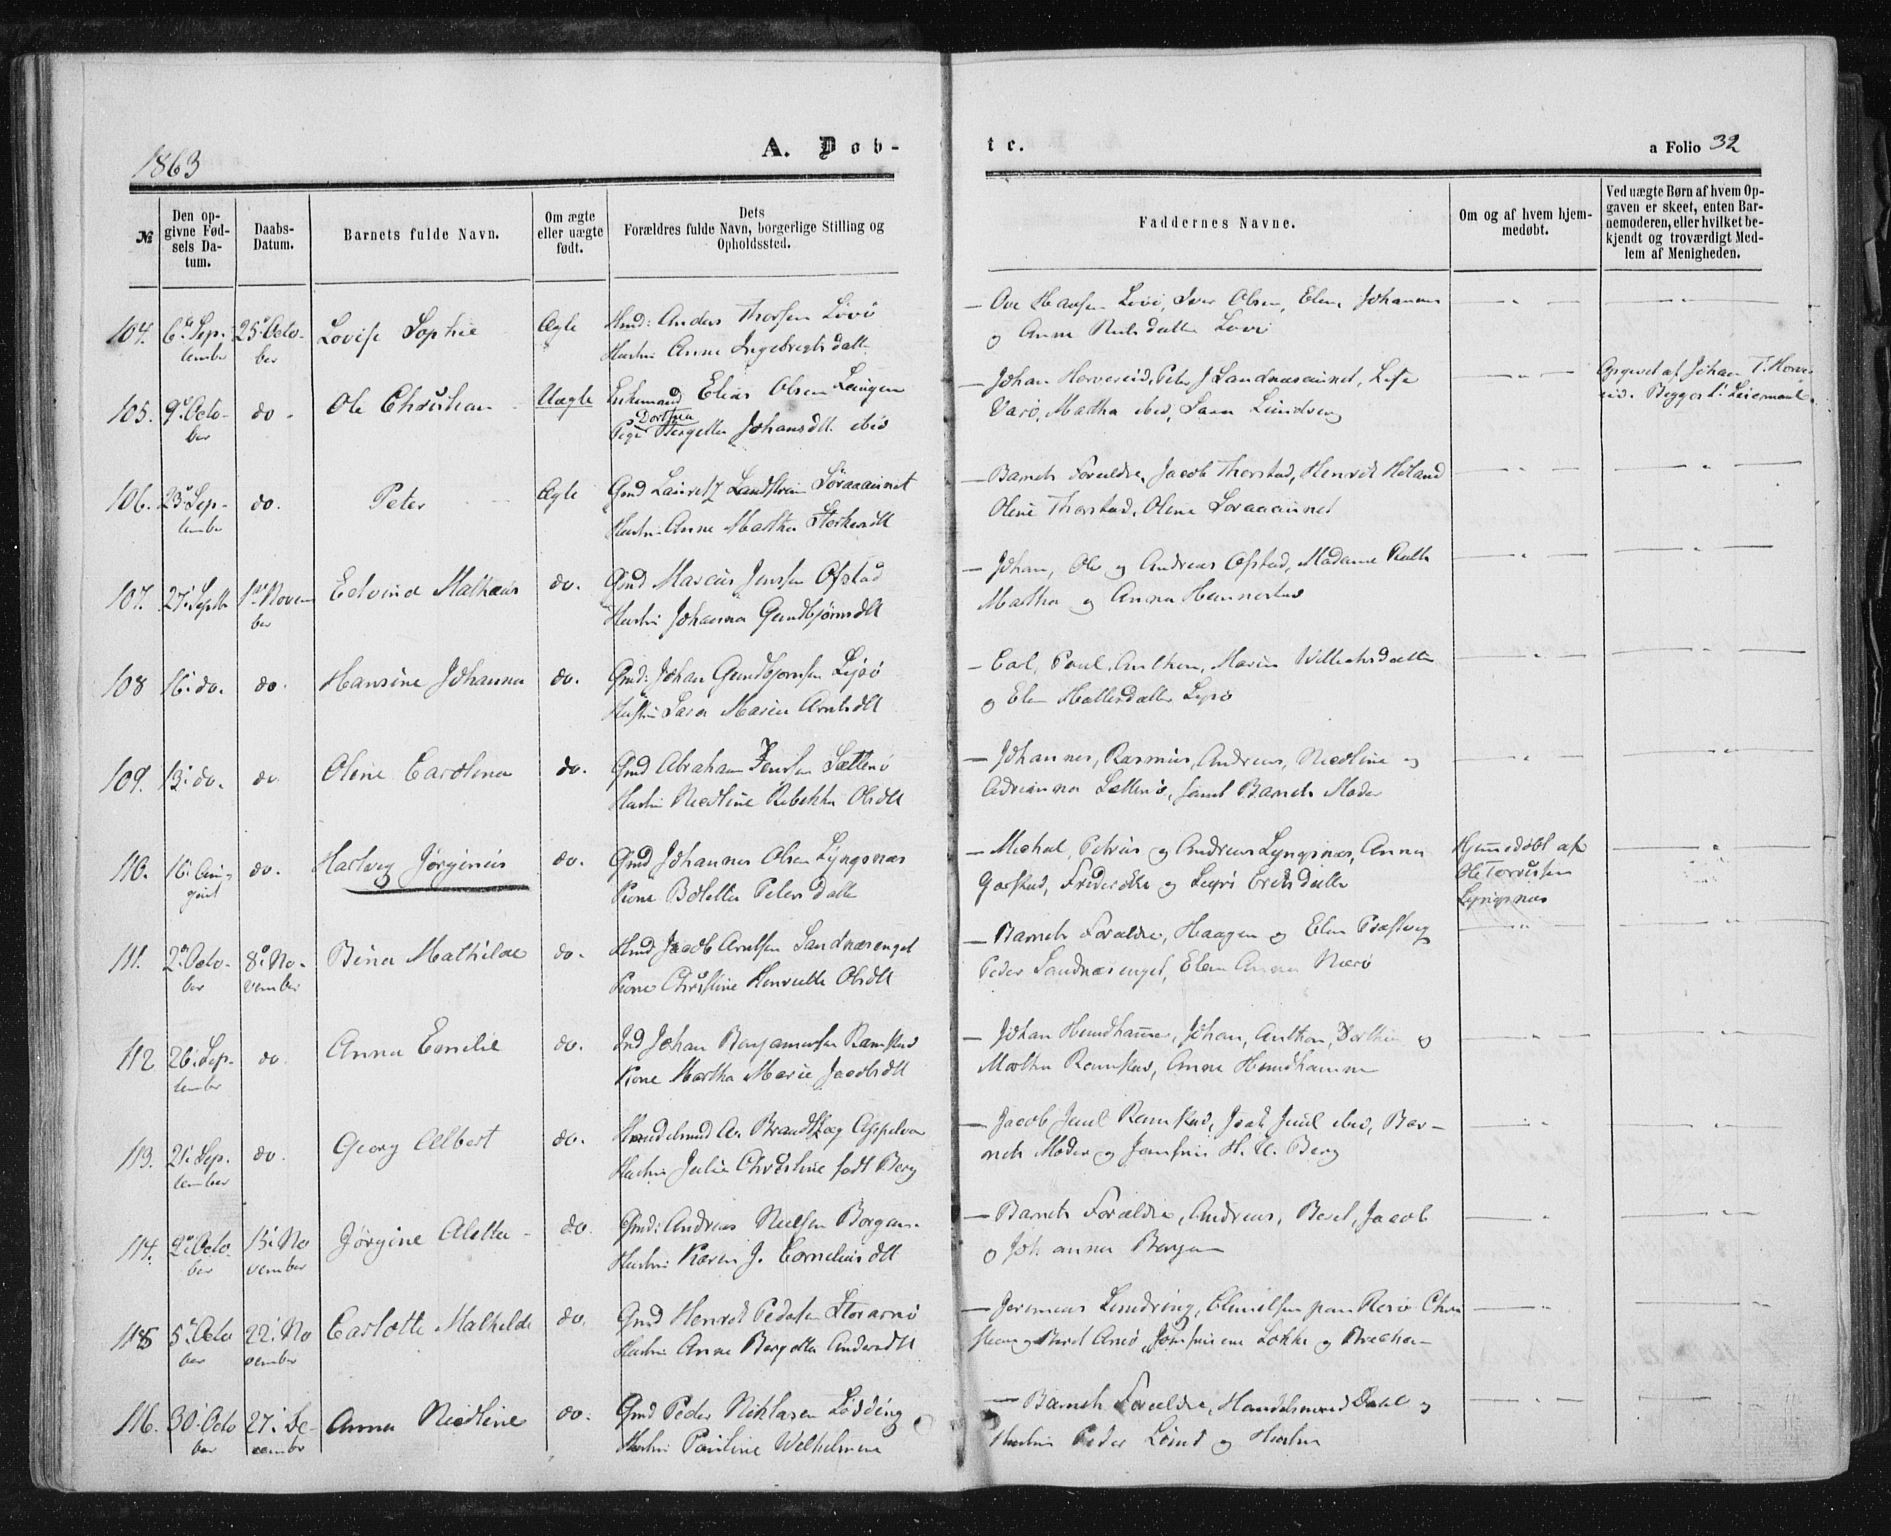 1863
A. Døb-
te.
a Folio 32
№
Den op-
givne Fød-
sels Da-
tum.
Daabs-
Datum.
Barnets fulde Navn.
Om ægte
eller uægte
født.
Dets
Forældres fulde Navn, borgerlige Stilling og
Opholdssted.
Faddernes Navne.
Om og af hvem hjem-
medøbt.
Ved uægte Børn af hvem Op-
gaven er skeet, enten Bar-
nemoderen, eller hvilket be-
kjendt og troværdigt Med-
lem af Menigheden.
104. 6te Sep- 25de Octo- Lovise Sophie Ægte Hmd: Anders Thorsen Lövö
tember ber Hustru Anne Ingebregtsdatter
— Ove Hansen Lovö, Iver Olsen, Elen Johanna
og Anne Nielsdatter Lovö
105. 9de Octo- do. Ole Christian Uægte Enkemand Elias Olsen Langen
ber Pige Dorthea Bergette Johansdtt. ibid
— Johan Horvereid, Peter J Landnæsaunet,
Varö, Martha ibid, Sara Lundring
Opgivet af Johan T. Horve-
reid. Begges 1ste Leiermaal.
106. 23de Sep- do. Peter Ægte Gmd Lauretz Landstrøm Sóraaaunet
tember Hustru Anne Martha Storkersdtt
— Barnets Forældre, Jacob Thorstad, Henrik Höiland
Oline Thorstad, Oline Soraaaunet
107. 27de Septb 1ste Novem Edvind Mathæus do. Gmd Marcus Jensen Ofstad
ber Hustru Johanna Gundbjörnsdtt
— Johan, Ole og Andreas Ofstad, Madame
Martha og Anna Hennestad
108 16de do. do. Hansine Johanna do. Gmd: Johan Gundbjornsen Lysö
Hustru Sara Maria Arntsdtt
— Paul, Anthon, Maria Willochsdatter
og Elen Hallesdatter Lysö
109. 13de do. do. Oline Carolina do. Gmd Abraham Jensen Sættenö
Hustru Nicoline Rebekka Olsdtt
— Johannes, Rasmus, Andreas, Nicoline og
Adrianna Sættenö, samt Barnets Moder
110. 16de Au- do. Hartvig Jörginius do. Gmd Johannes Olsen Lyngsnæs
gust Kone Boletta Petersdatter
— Michal, Petrus og Andreas Lyngsnæs, Anna
Garstad, Frederikke og Eriksdatter
Hjemmedöbt af
Ole Torrisen
Lyngsnæs
111. 2den Octo- 8de No- Bina Mathilde do. Hmd Jacob Arntsen Sandnæsenget
ber vember Kone Christine Henriette Olsdtt
— Barnets Forældre, Haagen og Elen Præstvig
Peder Sandnæsenget, Elen Anna Nærö
112 26de Sep- do. Anna Emelie do. Ind Johan Benjaminsen Ramstad
tember Kone Martha Marie Jacobsdtt
— Johan Hundhammer, Johan, Anthon, Dorthea og
Martha Ramstad, Anne Hundhammer
113. 21de Sep- do. Georg Albert do. Handelsmd A. Brandtzæg Appelvær
tember Hustru Julie Christine født Berg
— Jacob Juul Ramstad, Isak Juul ibid, Bar-
nets Moder og Jomfru H. U. Berg
114. 2den Octo- 15de No Jörgine Aletta do. Gmd: Andreas Nielsen Borgan.
ber vember Hustru Karen J. Corneliusdtt
— Barnets Forældre, Andreas, Beret, Jacob
og Johanna Borgan
115 5te Octo 22de No Carlotte Mathilde do. Gmd Henrik Pedersen Storarnö
ber vember Hustru Anne Bergette Andersdtt
— Jeremias Lundring, Clausen paa Risö Chri
stian og Beret Arnö, Jomfruene Lokke og
116. 30de Octo 27de De- Anna Nicoline do. Gmd Peder Niklasen Lödding
ber cember Hustru Pauline Wilhelmine
— Barnets Forældre, Handelsmand Dahl og
Hustru Peder Lund og Hustru